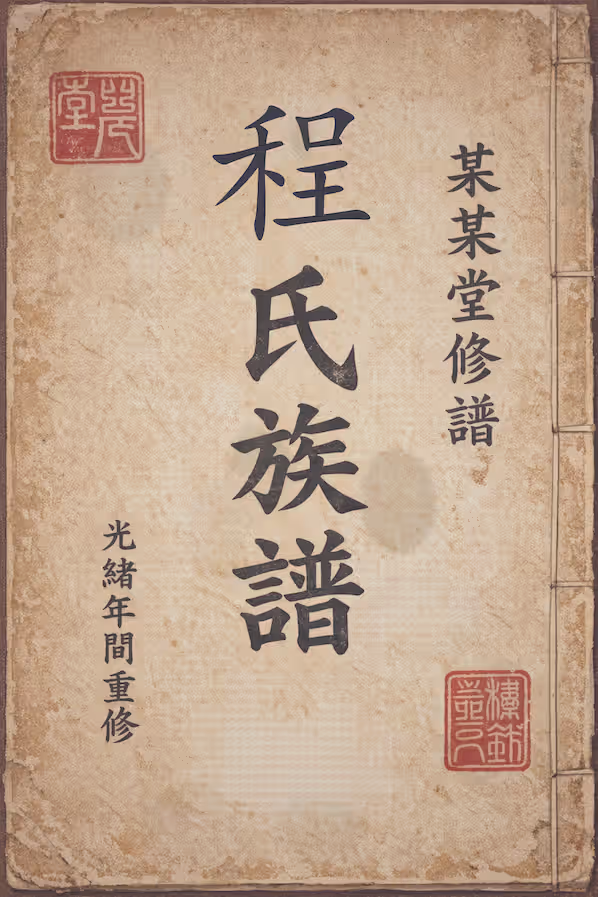 某某堂修譜
程氏族譜
光緒年間重修